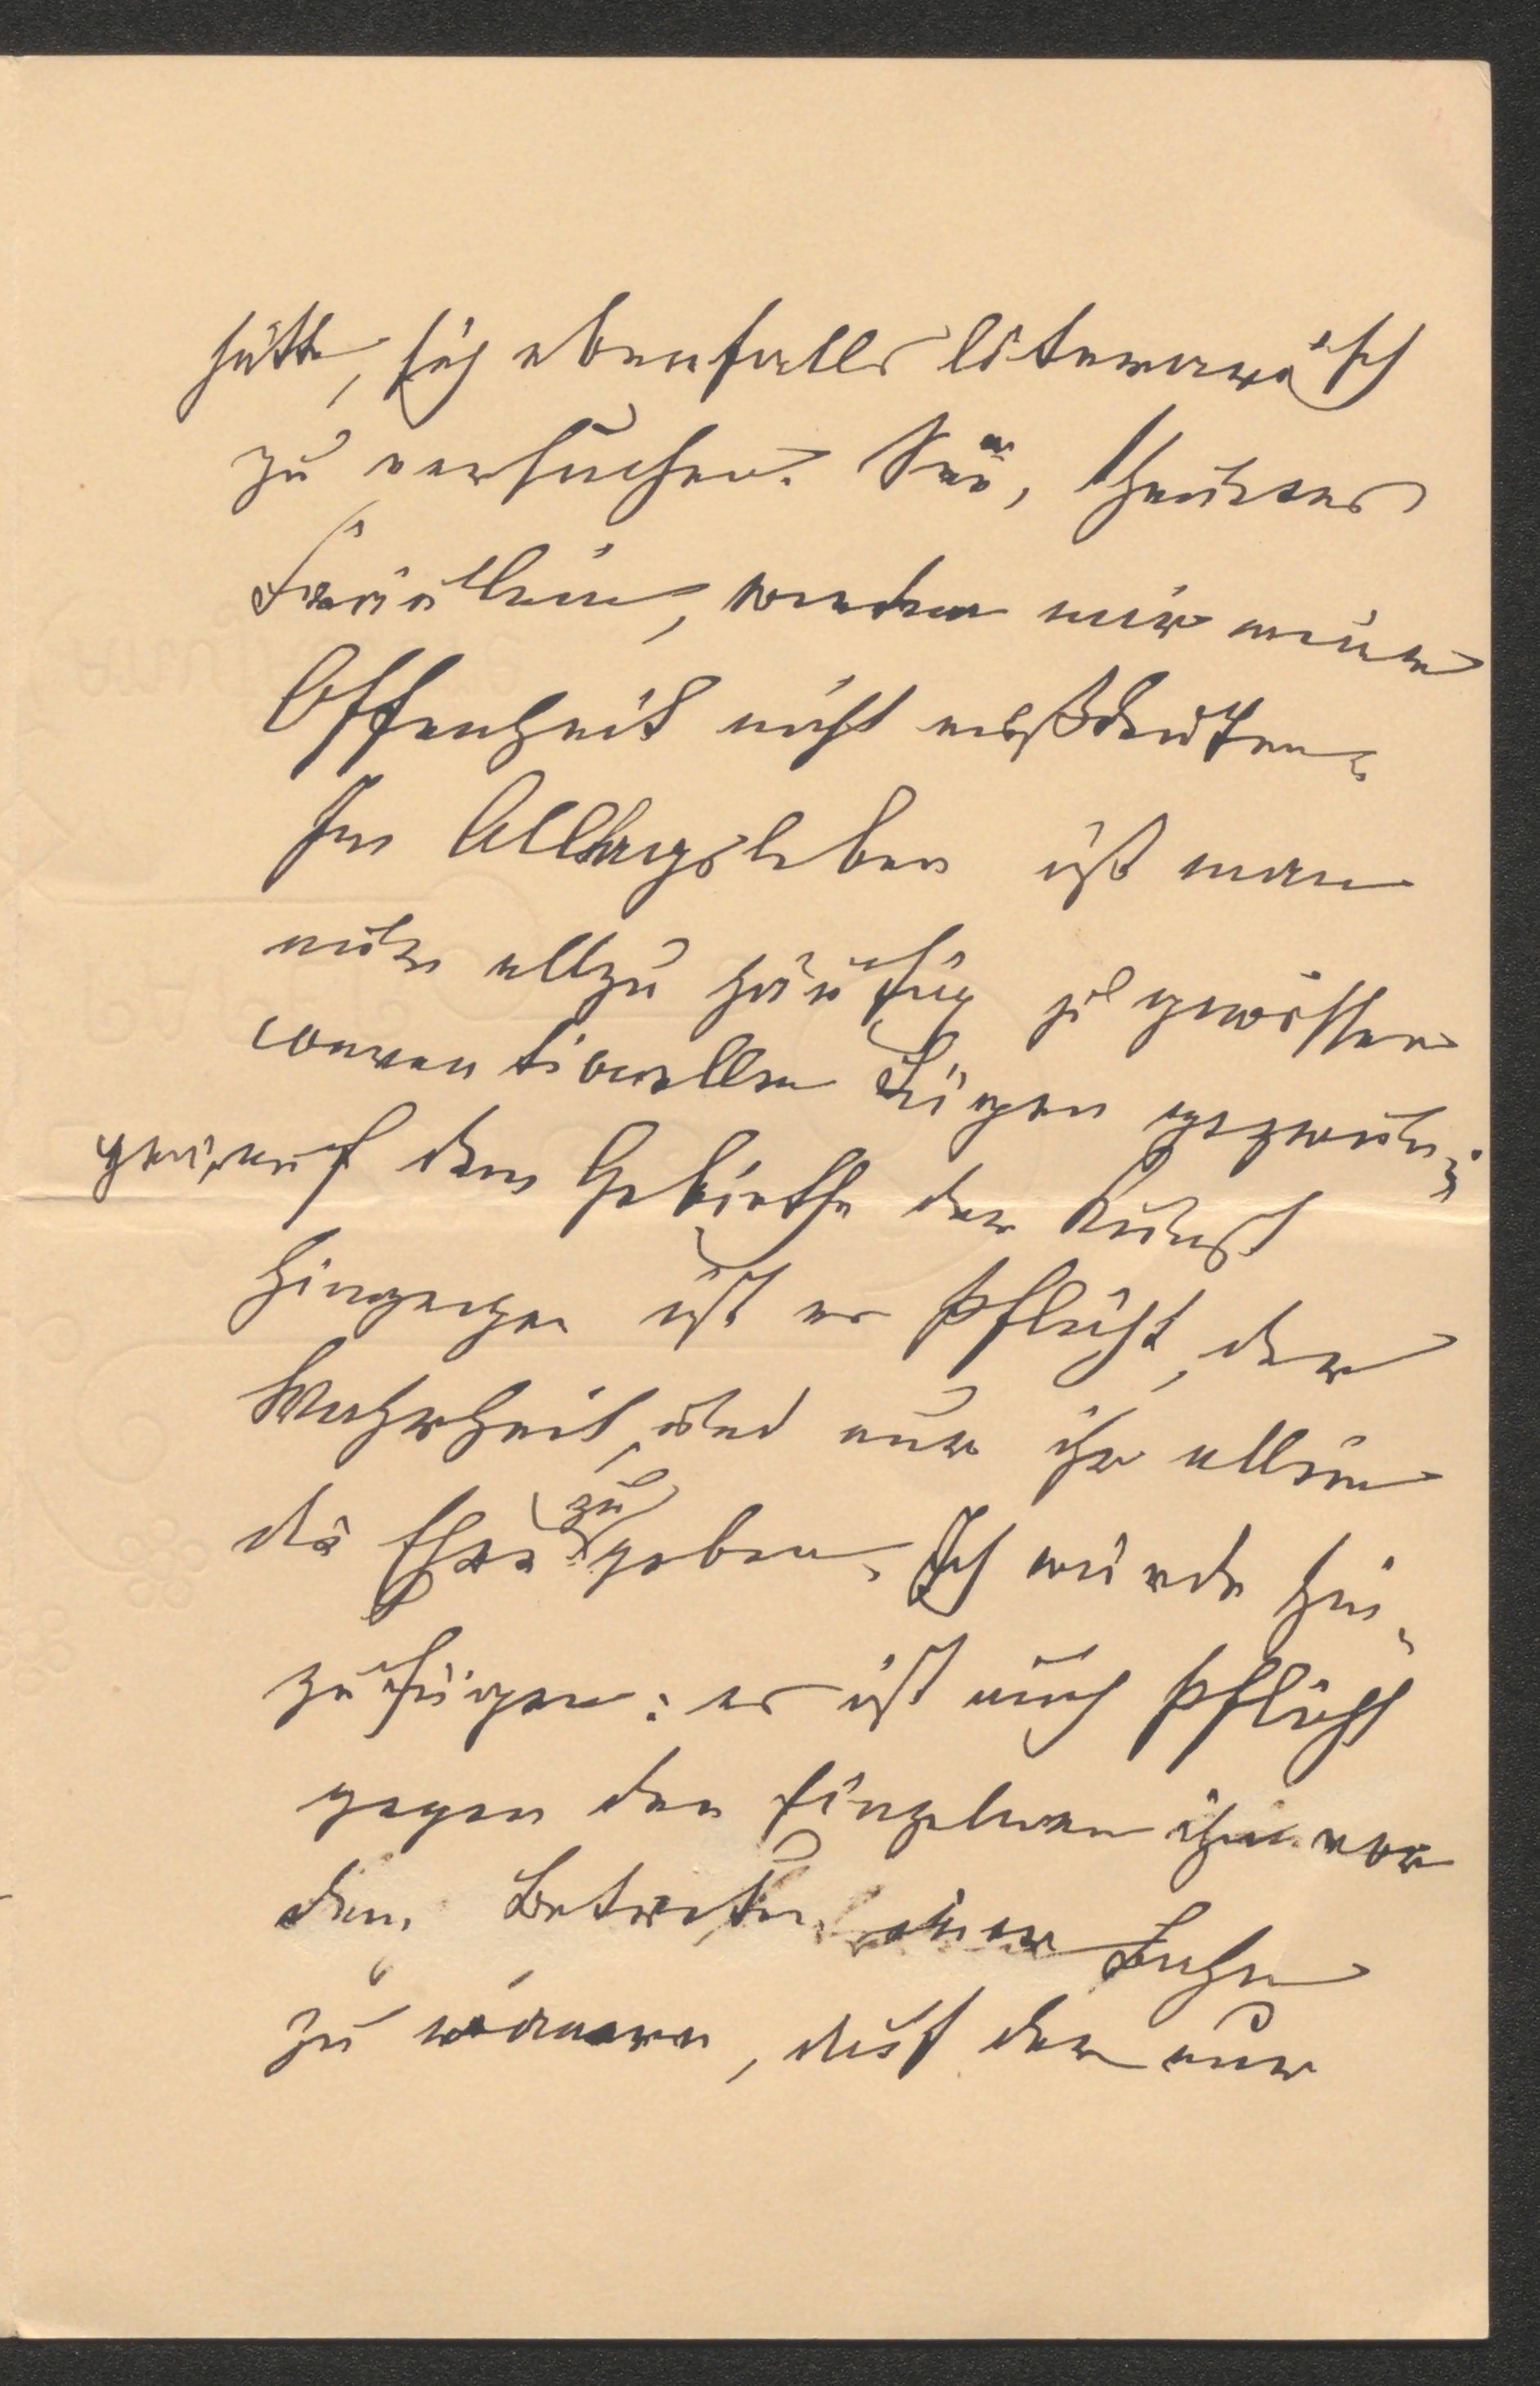 hätte, sich ebenfalls literarisch
zu versuchen. Sie, theures
Fräulein, werden mir meine
Offenheit nicht mißdeuten.
Im Alltagsleben ist man
nur allzu häufig zu gewissen
conventionellen Lügen gezwun-
gen; auf dem Gebiethe der Kunst
hingegen ist es Pflicht, der
Wahrheit, und nur ihr allein
die Ehre zu geben. Ich würde hin-
zufügen: es ist auch Pflicht
gegen den Einzelnen ihn vor
dem Betreten einer Bahn
zu warnen, auf der nur